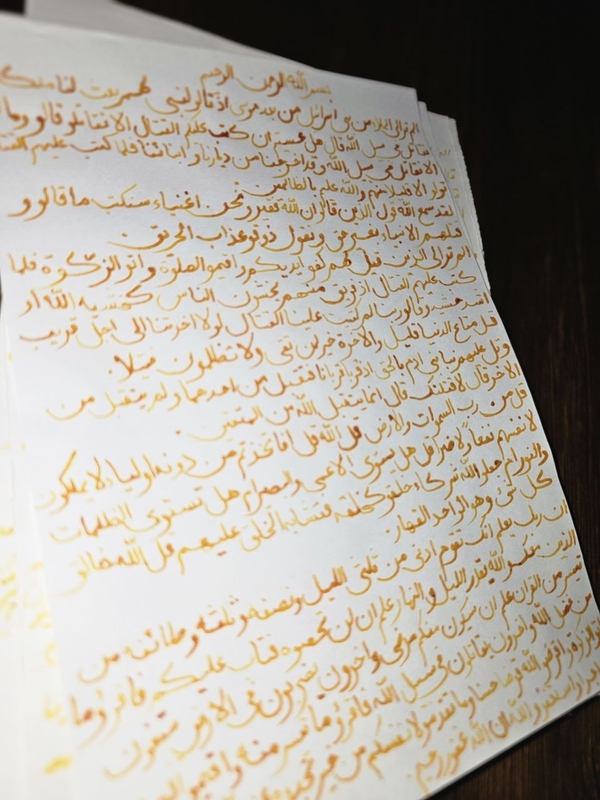 بسم الله الرحمن الرحيم
الم تر الى الملا من بنى اسرائيل من بعد موسى اذ قالو لنبى لهم ابعث لنا ملكا
نقاتل فى سبيل الله قال هل عسيتم ان كتب عليكم القتال الا تقاتلو قالو وما لنا
الا نقاتل فى سبيل الله وقد اخرجنا من ديارنا و ابنائنا فلما كتب عليهم القتال
تولو الا قليلا منهم والله عليم بالظالمين
لقد سمع الله قول الذين قالو ان الله فقير ونحن اغنياء سنكتب ما قالوو
قتلهم الانبياء بغير حق ونقول ذوقو عذاب الحريق
الم تر الى الذين قيل لهم كفو ايديكم و اقيمو الصلوة و اتو الزكوة فلما
كتب عليهم القتال اذ فريق منهم يخشون الناس كخشيه الله او
اشد خشيه وقالو ربنا لم كتبت علينا القتال لولا اخرتنا الى اجل قريب
قل متاع الدنيا قليل والاخرة خير لمن تقى ولا تظلمون فتيلا
وتل عليهم نبا بنى ادم بالحق اذ قربا قربانا فتقبل من احدهما ولم يتقبل من
الاخر قال لاقتلنك قال انما يتقبل الله من المتقين
قل من رب السموات والارض قل الله قل افاتخذتم من دونه اولياء لا يملكون
لانفسهم نفعا ولا ضرا قل هل يستوى الاعمى والبصير ام هل تستوى الظلمات
والنور ام جعلو لله شركاء خلقو كخلقه فتشابه الخلق عليهم قل الله خالق
كل شئ وهو الواحد القهار
ان ربك يعلم انك تقوم ادنى من ثلثى الليل ونصفه و ثلثه وطائفه من
الذين معك والله يقدر الليل و النهار علم ان لن تحصوه فتاب عليكم فاقرؤ ما
تيسر من القران علم ان سيكون منكم مرضى واخرون يضربون فى الارض يبتغون
من فضل الله واخرون يقاتلون فى سبيل الله فاقرؤ ما تيسر منه و اقيمو
الله قرضا حسنا وما تقدمو لانفسكم من خير تجدوه
واستغفرو الله ان الله غفور رحيم